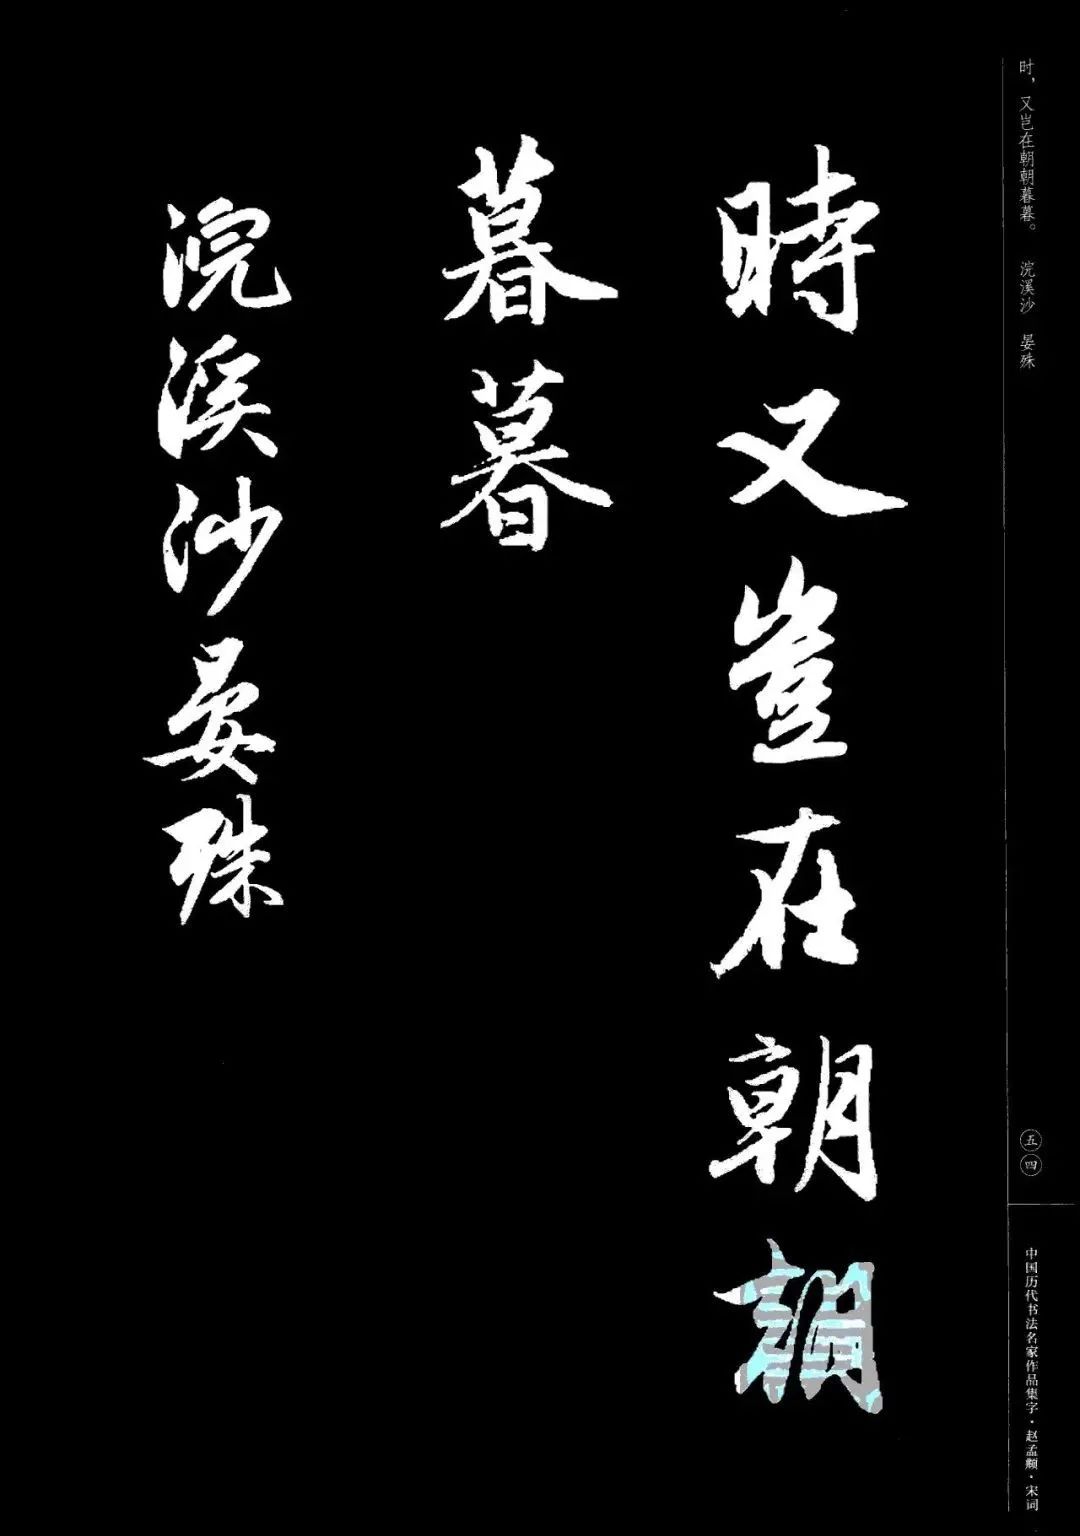 时，又岂在朝朝暮暮。 浣溪沙 晏殊
時又豈在朝朝
暮暮
浣溪沙晏殊
五四
中国历代书法名家作品集字·赵孟頫·宋词